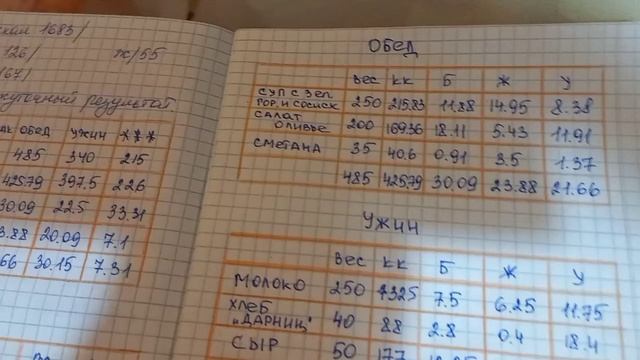 1683/
126/ Ж/55
167/
результат
ОБЕД УЖИН ***
485 340 215
425.79 397.5 226
30.09 22.5 33.31
3.88 20.09 7.1
66 30.15 7.31
ОБЕД
ВЕС КК Б Ж У
СУП С ЗЕЛ
ГОР. И СОСИСК 250 215.83 11.88 14.95 8.38
САЛАТ
ОЛИВЬЕ 200 169.36 18.11 5.43 11.91
СМЕТАНА 35 40.6 0.91 3.5 1.37
485 425.79 30.09 23.88 21.66
УЖИН
ВЕС КК Б Ж У
МОЛОКО 250 132.5 7.5 6.25 11.75
ХЛЕБ
„ДАРНИЦ" 40 88 2.8 0.4 18.4
СЫР 50 177